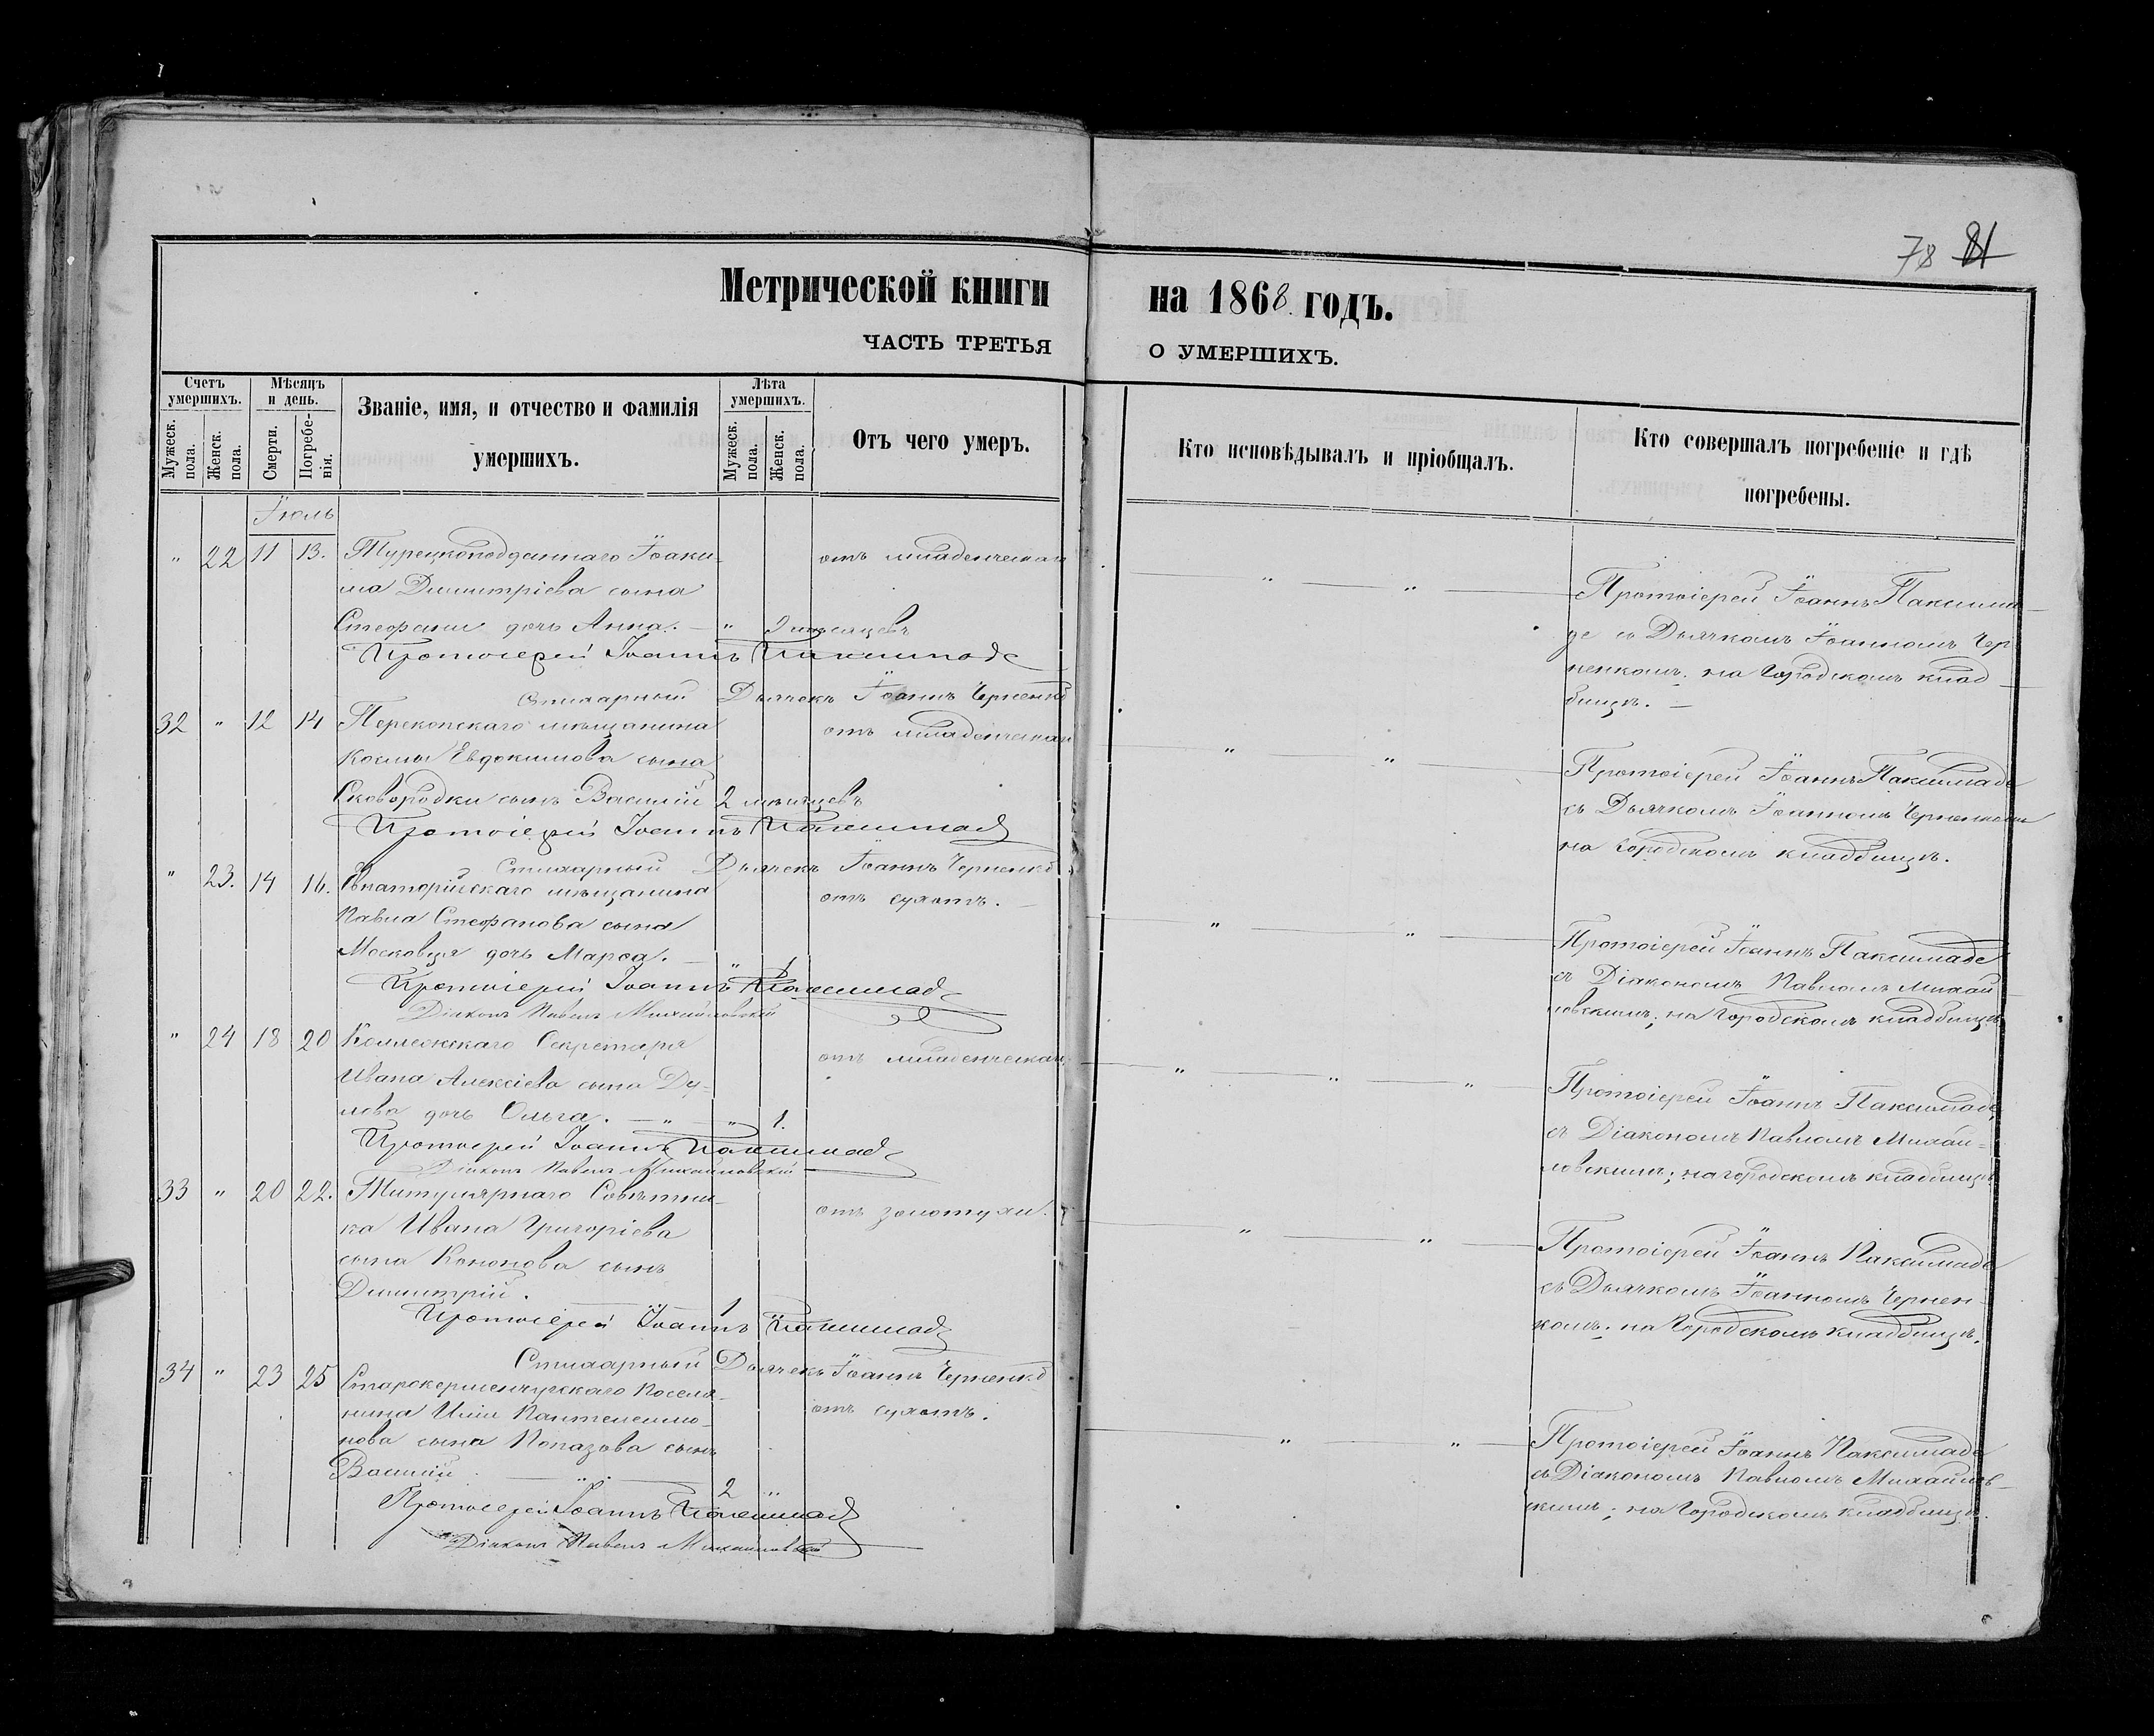 78 81
Метрической книги на 1868. годъ.
ЧАСТЬ ТРЕТЬЯ О УМЕРШИХЪ.
Счетъ умершихъ.
Мужеск. пола.
Женск. пола.
Мѣсяцъ и день.
Смерти.
Погребе-
нія.
Званіе, имя, и отчество и фамилія
умершихъ.
Лѣта умершихъ.
Мужеск. пола.
Женск. пола.
Отъ чего умеръ.
Кто исповѣдывалъ и пріобщалъ.
Кто совершалъ погребеніе и гдѣ
погребены.
Іюль
" 22 11 13. Турецкоподданнаго Іоаки-
ма Димитріева сына
Стефани дочь Анна. — " 2 мѣсяцевъ
отъ младенческаи
Протоіерей Іоаннъ Паксимаде
Стихарный Дьячекъ Іоаннъ Черненко
Протоіерей Іоаннъ Паксима-
де съ Дьячкомъ Іоанномъ Чер
ненкомъ. на Городскомъ клад-
бищѣ. —
32 " 12 14 Перекопскаго мѣщанина
Космы Евдокимова сына
Сковородки сынъ Василій 2 мѣсяцевъ
отъ младенческаи
Протоіерей Іоаннъ Паксимаде
Стихарный Дьячекъ Іоаннъ Черненко
Протоіерей Іоаннъ Паксимаде
съ Дьячкомъ Іоанномъ Черненкомъ
на Городскомъ кладбищѣ.
" 23. 14 16. Евпаторійскаго мѣщанина
Павла Стефанова сына
Московця дочь Марѳа. — " 1
отъ сухотъ. —
Протоіерей Іоаннъ Паксимаде
Діаконъ Павелъ Михайловскій
Протоіерей Іоаннъ Паксимаде
съ Діакономъ Павломъ Михай-
ловскимъ; на Городскомъ кладбищѣ
" 24 18 20 Коллежскаго Секретаря
Ивана Алексіева сына Ду-
лова дочь Ольга. — " — " 1.
отъ младенческаи
Протоіерей Іоаннъ Паксимаде
Діаконъ Павелъ Михайловскій
Протоіерей Іоаннъ Паксимаде
съ Діакономъ Павломъ Михай-
ловскимъ; на городскомъ кладбищѣ
33 " 20 22. Титулярнаго Совѣтни-
ка Ивана Григоріева
сына Кононова сынъ
Димитрій. 1
отъ золотухи.
Протоіерей Іоаннъ Паксимаде
Стихарный Дьячекъ Іоаннъ Черненко
Протоіерей Іоаннъ Паксимаде
съ Дьячкомъ Іоанномъ Чернен-
комъ. на Городскомъ кладбищѣ.
34 " 23 25 Старокерменчукскаго Поселя-
нина Иліи Пантелеимо-
нова сына Попазова сынъ
Василій. — " — 2 "
отъ сухотъ.
Протоіерей Іоаннъ Паксимаде
Діаконъ Павелъ Михайловскій
Протоіерей Іоаннъ Паксимаде
съ Діакономъ Павломъ Михайлов-
скимъ; на Городскомъ кладбищѣ.